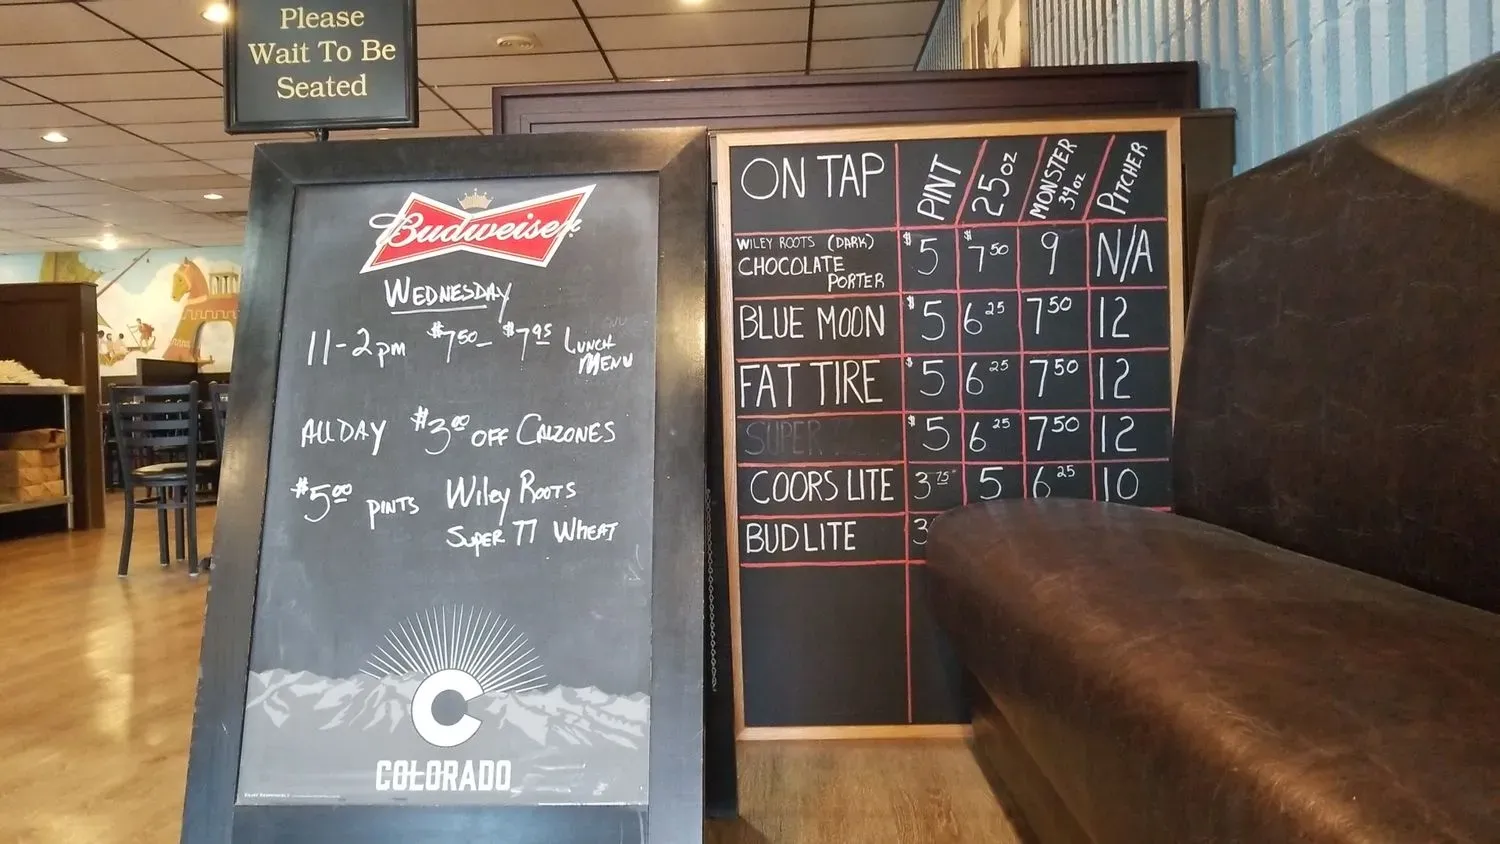 Please
Wait To Be
Seated
Budweiser
WEDNESDAY
11-2pm $7.50- $7.95 LUNCH MENU
ALL DAY $3.00 OFF CALZONES
$5.00 PINTS WILEY ROOTS
SUPER 77 WHEAT
C
COLORADO
ON TAP PINT 25oz MONSTER 34oz PITCHER
WILEY ROOTS (DARK) CHOCOLATE PORTER $5 $7.50 9 N/A
BLUE MOON $5 6.25 7.50 12
FAT TIRE $5 6.25 7.50 12
SUPER $5 6.25 7.50 12
COORS LITE 3.75 5 6.25 10
BUD LITE 3